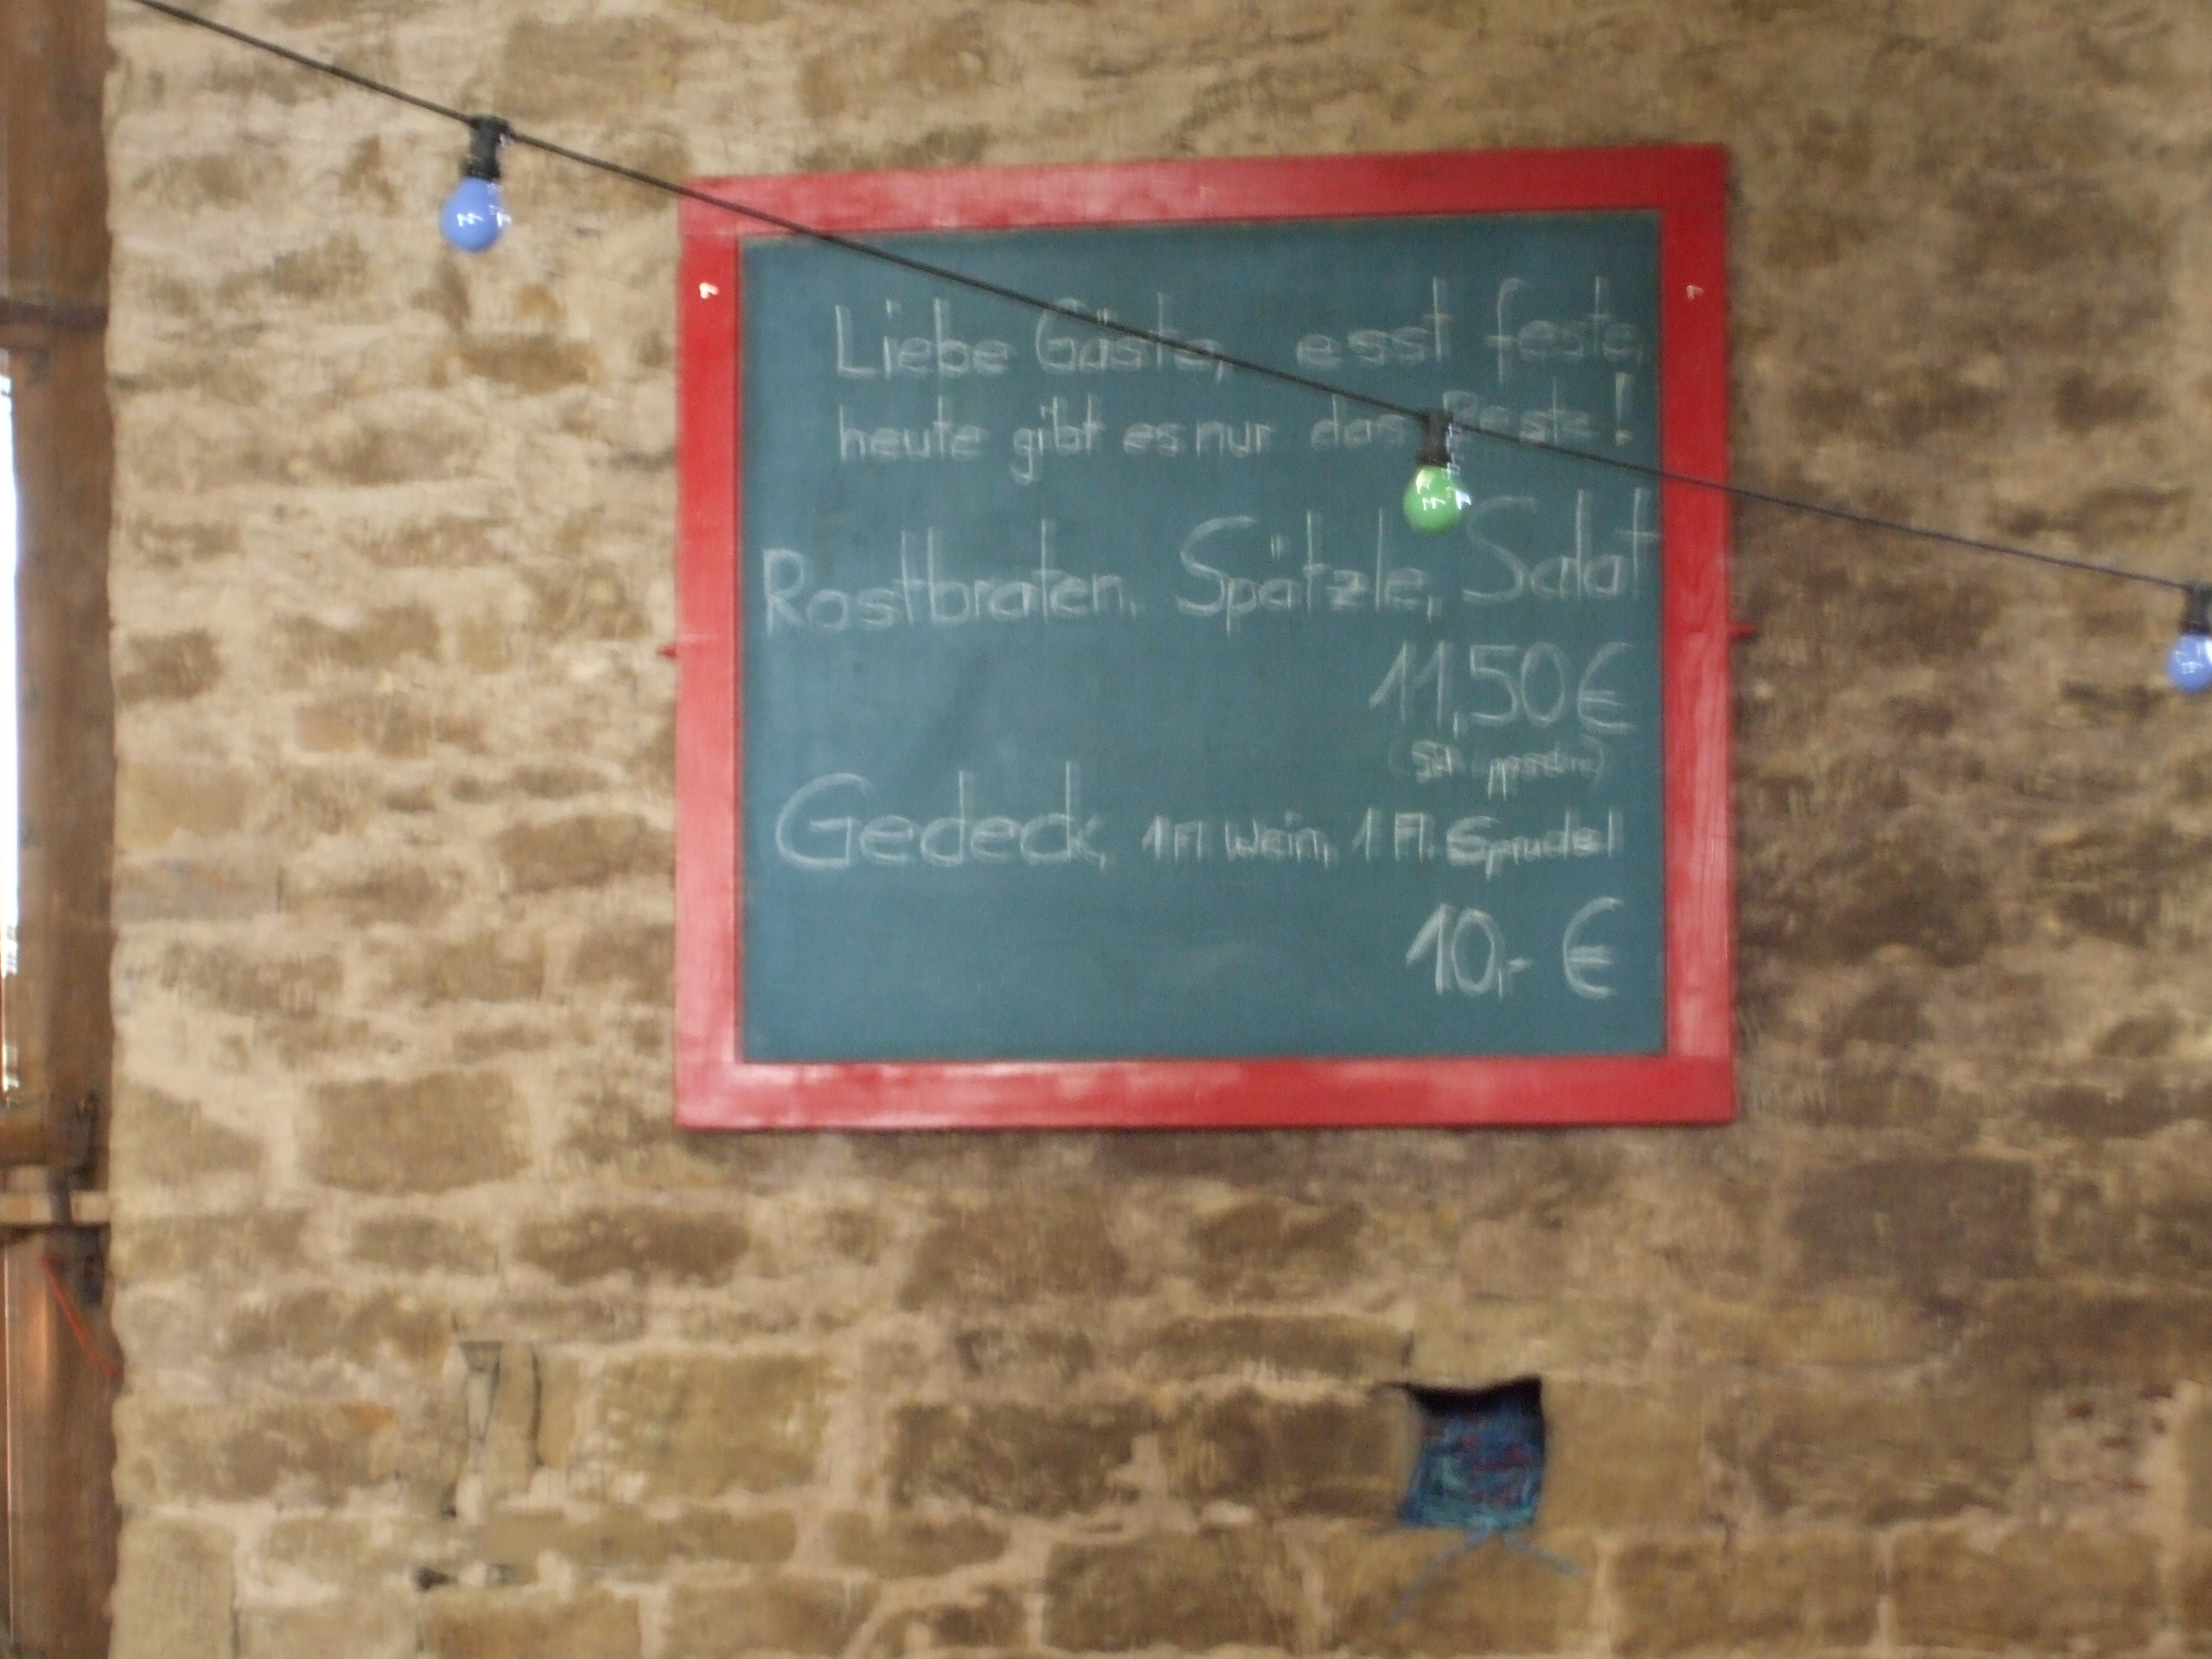 Liebe Gäste, esst feste,
heute gibt es nur das Beste!
Rostbraten, Spätzle, Salat
11,50€
Gedeck, 1 Fl. Wein, 1 Fl. Sprudel
10,- €